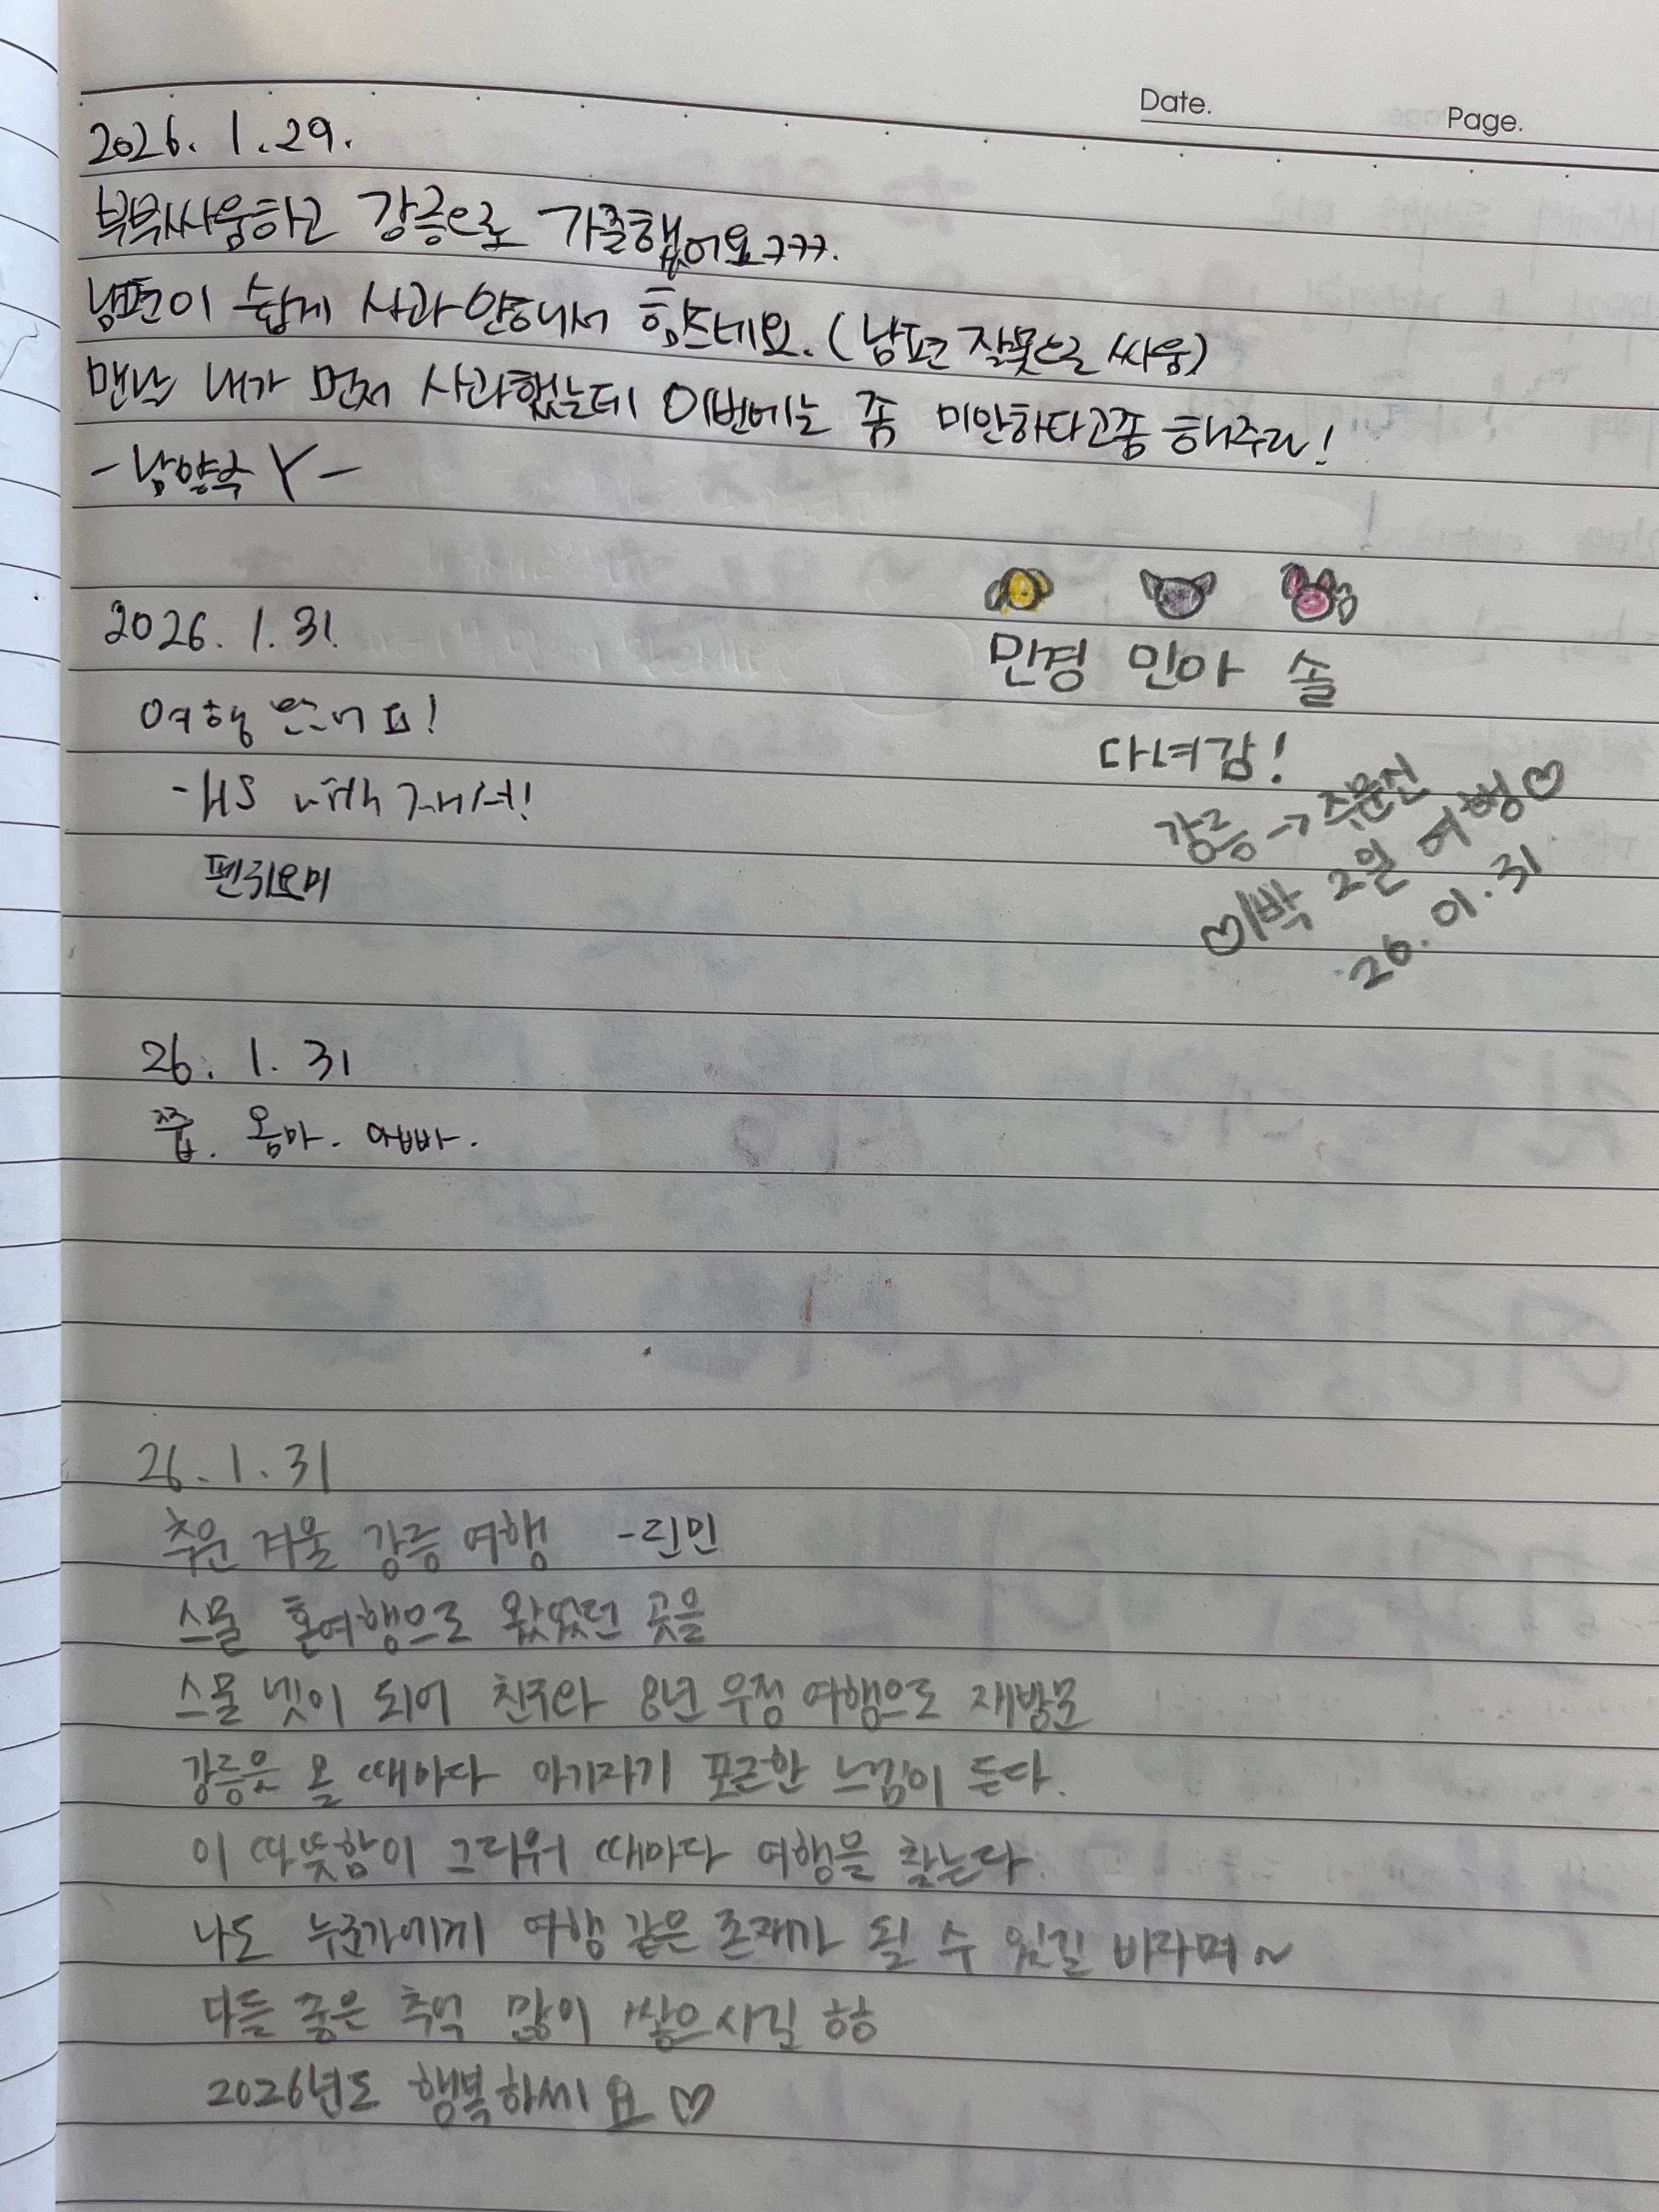 Date.
Page.
2026. 1. 29.
부부싸움하고 강릉으로 가출했어요ㅋㅋㅋ.
남편이 쉽게 사과안해서 힘드네요. (남편 잘못으로 싸움)
맨날 내가 먼저 사과했는데 이번에는 좀 미안하다고좀 해주라!
-남양주 Y-
2026. 1. 31.
여행
-HS
펜귀요미
민경 민아 솔
다녀감!
강릉→주문진
♡1박 2일 여행♡
26. 01. 31
26. 1. 31
쭙. 옴마. 아빠.
26. 1. 31
추운 겨울 강릉 여행 -린민
스물 혼여행으로 왔었던 곳을
스물 넷이 되어 친구와 8년 우정 여행으로 재방문
강릉은 올 때마다 아기자기 포근한 느낌이 든다.
이 따뜻함이 그리워 때마다 여행을 찾는다.
나도 누군가에게 여행 같은 존재가 될 수 있길 바라며~
다들 좋은 추억 많이 쌓으시길 항
2026년도 행복하쎄요 ♡